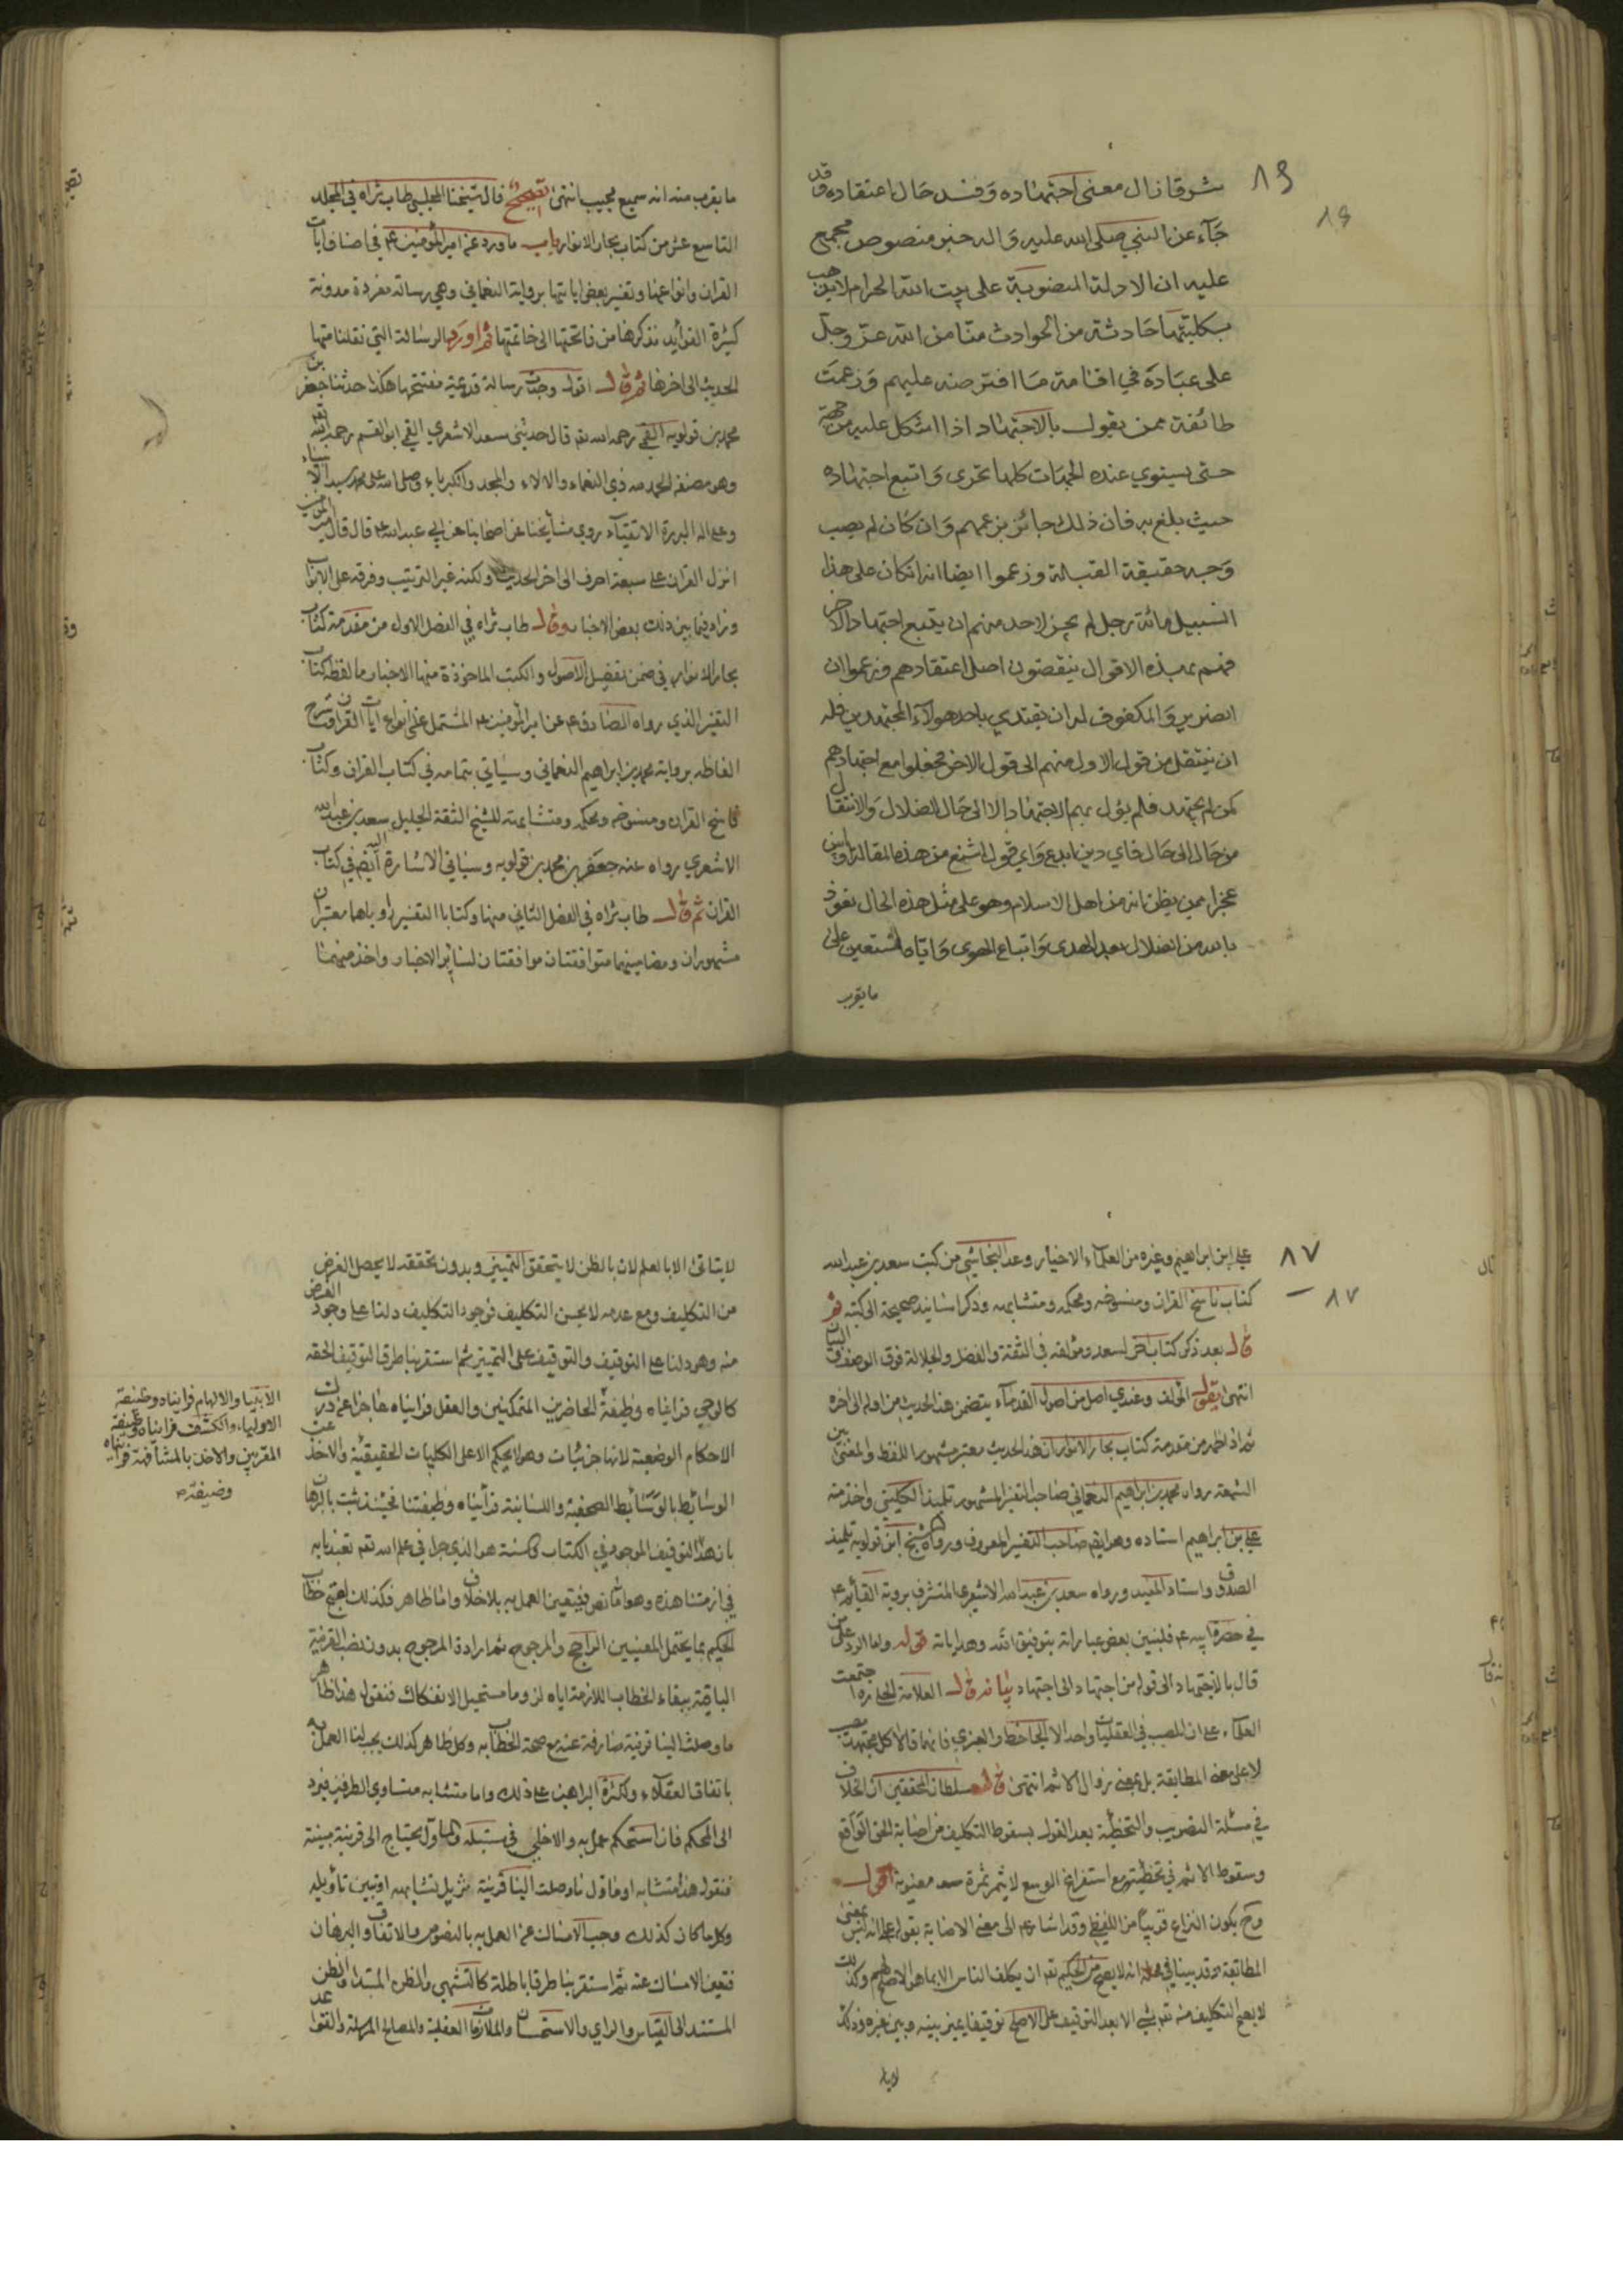 شرقا زال معنى اجتهاده وفسد حال اعتقاده وقد
جآء عن النبي صلى الله عليه واله خبر منصوص مجمع
عليه ان الادلة المنصوبة على بيت الله الحرام لا يذهب
بكليتها حادثة من الحوادث منا من الله عز وجل
على عباده في اقامة ما افترضه عليهم وزعمت
طائفة ممن يقول بالاجتهاد اذا اشكل عليه من جهة
حتى يستوي عنده الجهات كلها تحرى واتبع اجتهاده
حيث بلغ به فان ذلك جائز بزعمهم وان كان لم يصب
وجه حقيقة القبلة وزعموا ايضا انه ان كان على هذا
السبيل مائة رجل لم يجز لاحد منهم ان يتبع اجتهاد الاخر
فهم بهذه الاقوال ينقضون اصل اعتقادهم وزعموا ان
الضرير والمكفوف له ان يقتدي باحد هولاء المجتهدين فله
ان ينتقل من قول الاول منهم الى قول الاخر فجعلوا مع اجتهادهم
كمن لم يجتهد فلم يؤل بهم الاجتهاد الا الى حال الضلال والانتقال
من حال الى حال فاي دين ابدع واي قول اشنع من هذه المقالة وابين
عجزا ممن يظن انه من اهل الاسلام وهو على مثل هذه الحال نعوذ
بالله من الضلال بعد الهدى واتباع الهوى واياه نستعين على
ما يقرب
٨٦
٨٦
ما يقرب منه انه سميع مجيب انتهى قال شيخنا المجلسي طاب ثراه في المجلد
التاسع عشر من كتاب بحار الانوار باب ما ورد عن امير المؤمنين ع في اصناف ايات
القران وانواعها وتفسير بعض اياتها برواية النعماني وهي رسالة مفردة مدونة
كثيرة الفوائد نذكرها من فاتحتها الى خاتمتها ثم اورد الرسالة التي نقلنا منها
الحديث الى اخرها ثم قال اقول وجدت رسالة قديمة مفتتحها هكذا حدثنا جعفر بن
محمد بن قولويه القمي رحمه الله قال حدثني سعد الاشعري القمي ابو القسم رحمه الله
وهو مصنفه الحمد لله ذي النعماء والالاء والمجد والكبرياء وصلى الله على محمد سيد الانبياء
وعلى اله البررة الاتقياء روى مشايخنا عن اصحابنا عن ابي عبد الله ع قال قال امير المؤمنين
انزل القران على سبعة احرف الى اخر الحديث ولكنه غير الترتيب وفرقه على الابواب
وزاد فيما بين ذلك بعض الاخبار وقال طاب ثراه في الفصل الاول من مقدمة كتاب
بحار الانوار في ضمن تفصيل الاصول والكتب الماخوذة منها الاخبار ما لفظه كتاب
التفسير الذي رواه الصادق ع عن امير المؤمنين ع المشتمل على انواع ايات القران وشرح
الفاظه برواية محمد بن ابراهيم النعماني وسياتي بتمامه في كتاب القران وكتاب
ناسخ القران ومنسوخه ومحكمه ومتشابهه للشيخ الثقة الجليل سعد بن عبد الله
الاشعري رواه عنه جعفر بن محمد بن قولويه وسياتي الاشارة اليه ايضا في كتاب
القران ثم قال طاب ثراه في الفصل الثاني منها وكتابا التفسير راوياهما معتبران
مشهوران ومضامينهما متوافقتان موافقتان لسائر الاخبار واخذ منهما
٨٧
٨٧
علي ابن ابراهيم وغيره من العلماء الاخيار وعد النجاشي من كتب سعد بن عبد الله
كتاب ناسخ القران ومنسوخه ومحكمه ومتشابهه وذكر اسانيد صحيحة الى كتبه ثم
قال بعد ذكر كتاب اخر لسعد ومؤلفه في الثقة والفضل والجلالة فوق الوصف والبيان
انتهى يقول المؤلف وعندي اصل من اصول القدماء يتضمن هذا الحديث من اوله الى اخره
من مقدمة كتاب بحار الانوار ان هذا الحديث معتبر مشهور اللفظ والمعنى بين
الشيعة رواه محمد بن ابراهيم النعماني صاحب التفسير المشهور تلميذ الكليني واخذ منه
علي بن ابراهيم استاده وهو ايضا صاحب التفسير المعروف ورواه الشيخ ابن قولويه تلميذ
الصدوق واستاد المفيد ورواه سعد بن عبد الله الاشعري المتشرف برؤية القائم ع
في حضرة ابيه ع فلنبين بعض عباراته بتوفيق الله وهداياته قوله واما الرد على من
قال بالاجتهاد الى قوله من اجتهاد الى اجتهاد بيانه قال العلامة الحلي ره اجتمعت
العلماء على ان المصيب في العقليات واحد الا الجاحظ والعنبري فانهما قالا كل مجتهد مصيب
لا على معنى المطابقة بل بمعنى زوال الاثم انتهى قال سلطان المحققين ان الخلاف
في مسئلة التصويب والتخطئة بعد القول بسقوط التكليف من اصابة الحق الواقع
وسقوط الاثم في تخطئته مع استفراغ الوسع لا يثمر ثمرة معنوية اقول
وح يكون النزاع قريبا من اللفظي وقد اشار ع الى معنى الاصابة بقوله على انه ليس بمعنى
المطابقة وقد بينا في محله انه لا يصح من الحكيم تعم ان يكلف الناس الا بما هو الاصلح لهم وكذلك
لا يصح التكليف منه تعم بشئ الا بعد التوقيف على الاصلح توقيفا يميز بينه وبين غيره وذلك
لايتا
لا يتاتى الا بالعلم لان بالظن لا يتحقق التميز وبدون تحققه لا يحصل الغرض
من التكليف ومع عدمه لا يحسن التكليف فوجود التكليف دلنا على وجود الغرض
منه وهو دلنا على التوقيف والتوقيف على التميز ثم استقرينا طرق التوقيف الحقه
كالوحي فراينا وظيفة الحاضرين المتمكنين والعقل فرايناه عاجزا عن درك
الاحكام الوضعية لانها جزئيات وهو لا يحكم الا على الكليات الحقيقية والاخذ عن
الوسائط بالوسائط الصحفية واللسانية فرايناه وظيفتنا فحينئذ ثبت بالبرهان
بان هذا التوقيف الموجود في الكتاب والسنة هو الذي جرا في علم الله تعم تعبدنا به
في ازمنتنا هذه وهو اما نص فيتعين العمل به بلا خلاف واما ظاهر فكذلك لقبح خطاب
الحكيم بما يحتمل المعنيين الراجح والمرجوح ثم ارادة المرجوح بدون نصب القرينة
الباقية ببقاء الخطاب اللازمة اياه لزوما مستحيل الانفكاك فنقول هذا ظاهر
ما وصلت الينا قرينة صارفة عنه مع صحة الخطاب به وكل ظاهر كذلك يجب لنا العمل به
باتفاق العقلاء ولكثرة البراهين على ذلك واما متشابه متساوي الطرفين فيرد
الى المحكم فان استحكم عمل به والا خلي في سنبله والماول يحتاج الى قرينة مبينة
فنقول هذا متشابه او ماول ما وصلت الينا قرينة تزيل تشابهه او تبين تاويله
وكل ما كان كذلك وجب الامساك عن العمل به بالنصوص والاتفاق والبرهان
فتعين الامساك عنه ثم استقرينا طرقا باطلة كالتشهي والظن المبتدا والظن
المستند الى القياس والراي والاستحسان والملازمات العقلية والمصالح المرسلة والقواعد
الانبياء والالهام فرايناه وظيفة
الاولياء والكشف فرايناه وظيفة
المقربين والاخذ بالمشافهة فرايناه
وضيفة